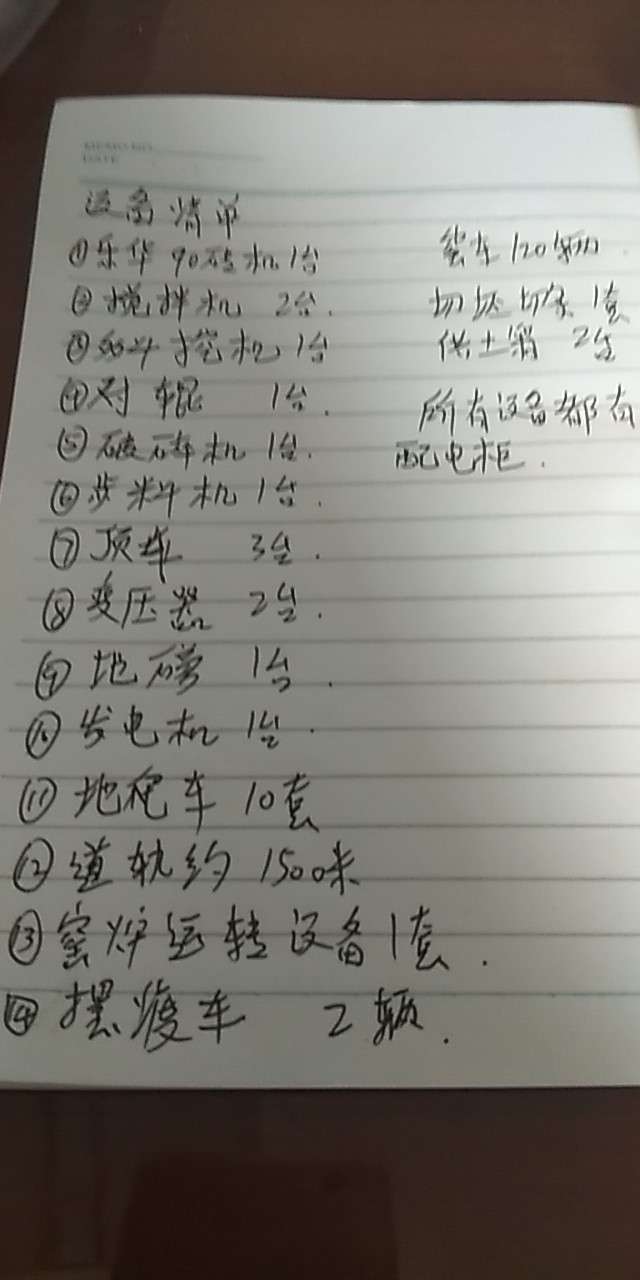 MEMO NO.
DATE
设备清单
①乐华90砖机1台
②搅拌机 2台.
③ 挖机1台
④对辊 1台.
⑤破碎机1台.
⑥步料机1台.
⑦顶车 3台.
⑧变压器 2台.
⑨地磅 1台.
⑩发电机 1台.
⑪地爬车 10套
⑫道轨约1500米
⑬窑炉运转设备1套.
⑭摆渡车 2辆.
窑车120辆
切坯切条1套
供土箱 2台
所有设备都有
配电柜.